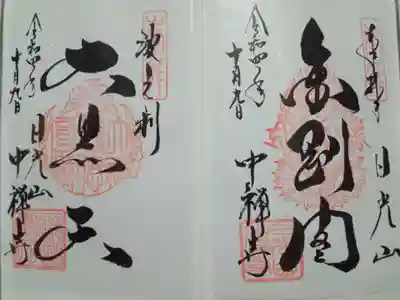 奉拝
日光山
金剛閣
中禅寺
令和四年
十月九日
波之利
大黒天
日光山
中禅寺
令和四年
十月九日